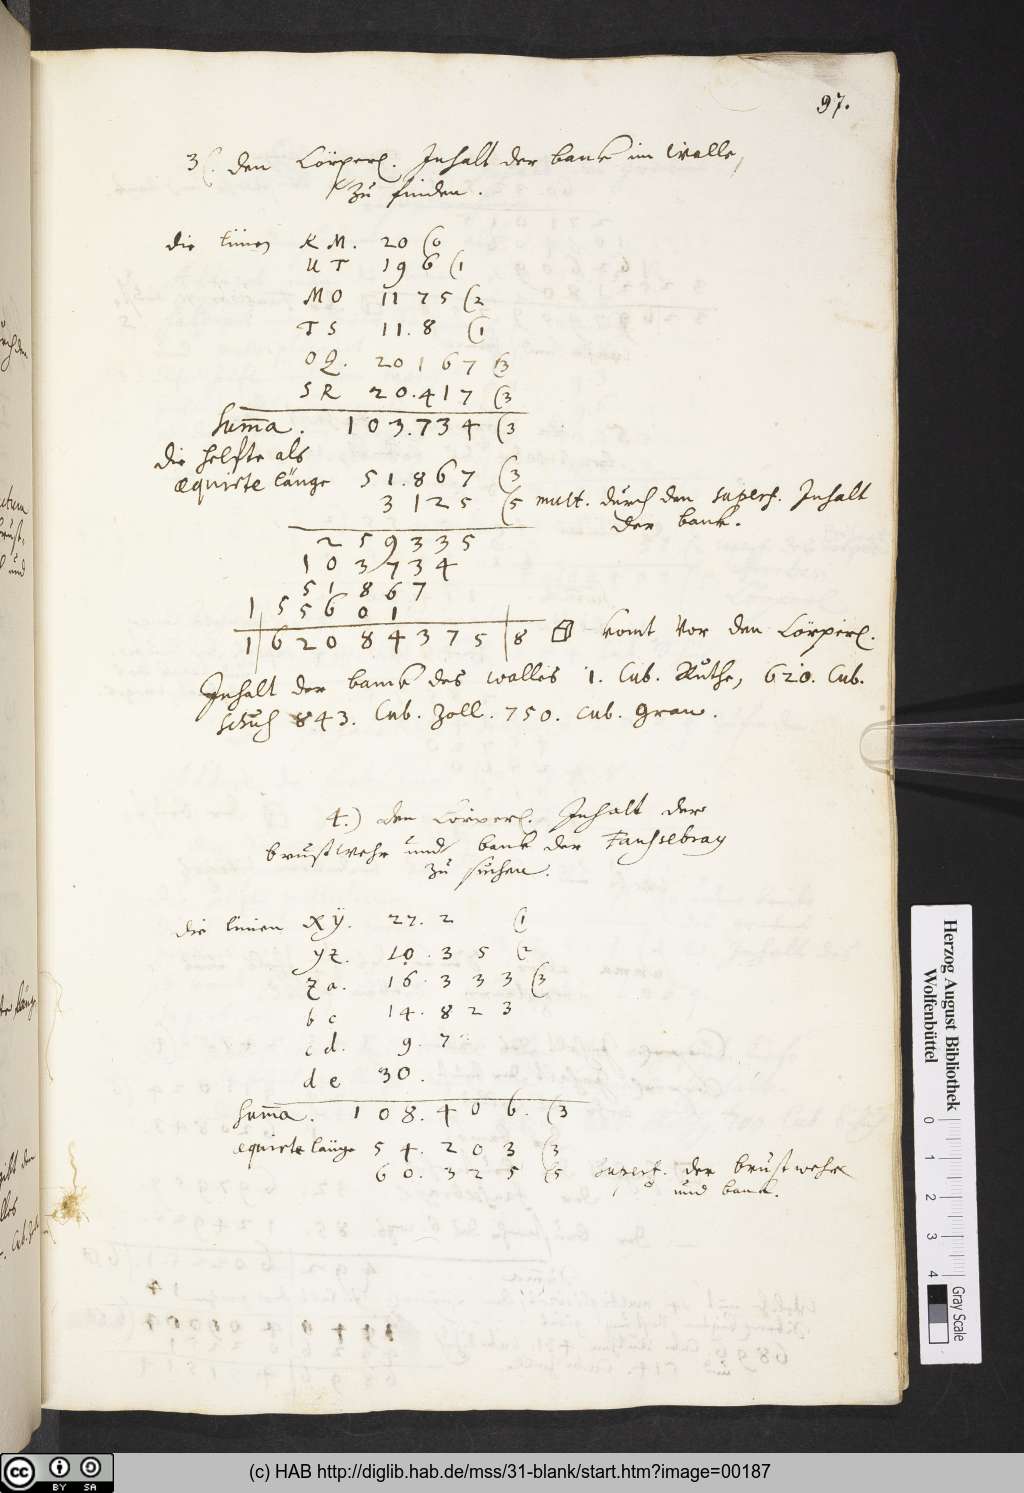 97.
3(. den Cörperl. Inhalt der banck im Walle,
zu finden.
die linien K M. 20 (0
U T 19 6 (1
M O 11 75 (2
T S 11.8 (1
O Q. 20 1 6 7 (3
S R 20.417 (3
Summa. 103.734 (3
die helfte als
æquirte länge 51.867 (3
3125 (5 mult. durch den superf. Inhalt
der banck.
259335
103734
51867
155601
1|620843 75|8 komt vor den Cörperl.
Inhalt der banck des walles 1. Cub. Ruthe, 620. Cub.
schuch 843. Cub. Zoll. 750. cub. gran.
4.) den Cörperl. Inhalt der
brustwehr und banck der Faussebray
zu suchen.
die linien Xÿ. 27. 2 (1
yz. 10. 3 5 (2
za. 16. 3 3 3 (3
b c 14. 8 2 3
c d. 9. 7
d e 30.
Summa. 1 0 8. 4 0 6. (3
æquirte länge 5 4. 2 0 3 (3
6 0. 3 2 5 (5 superf. der brustwehr
und banck.
Herzog August Bibliothek
Wolfenbüttel
0 1 2 3 4
Gray Scale
cc BY SA
(c) HAB http://diglib.hab.de/mss/31-blank/start.htm?image=00187